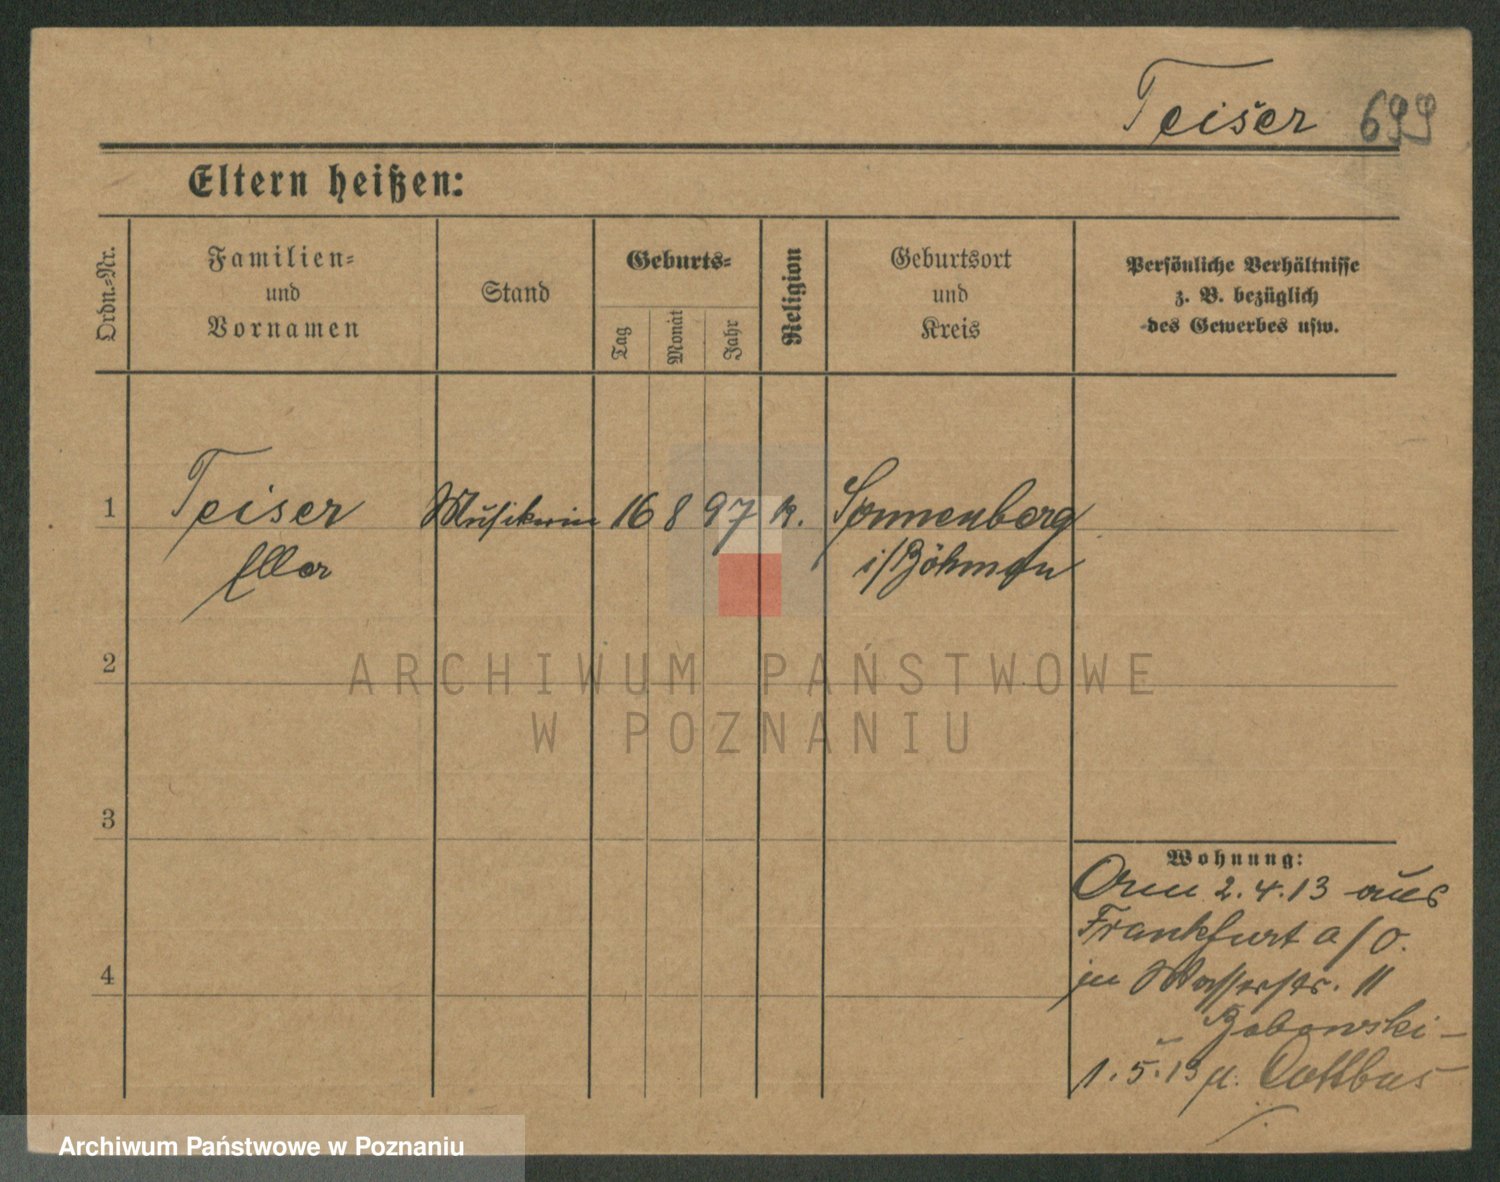 Teiser 699
Eltern heißen:
Ordn.-Nr.
Familien-
und
Vornamen
Stand
Geburts-
Tag
Monat
Jahr
Religion
Geburtsort
und
Kreis
Persönliche Verhältnisse
z. B. bezüglich
des Gewerbes usw.
1 Teiser Musikerin 16 8 97 k. Sonnenberg
Ella i/Böhmen
2
ARCHIWUM PAŃSTWOWE
W POZNANIU
3
Wohnung:
2.4.13 aus
Frankfurt a/O.
in Wasserstr. 11
4
Bobowski -
1.5.13 n. Cottbus
Archiwum Państwowe w Poznaniu